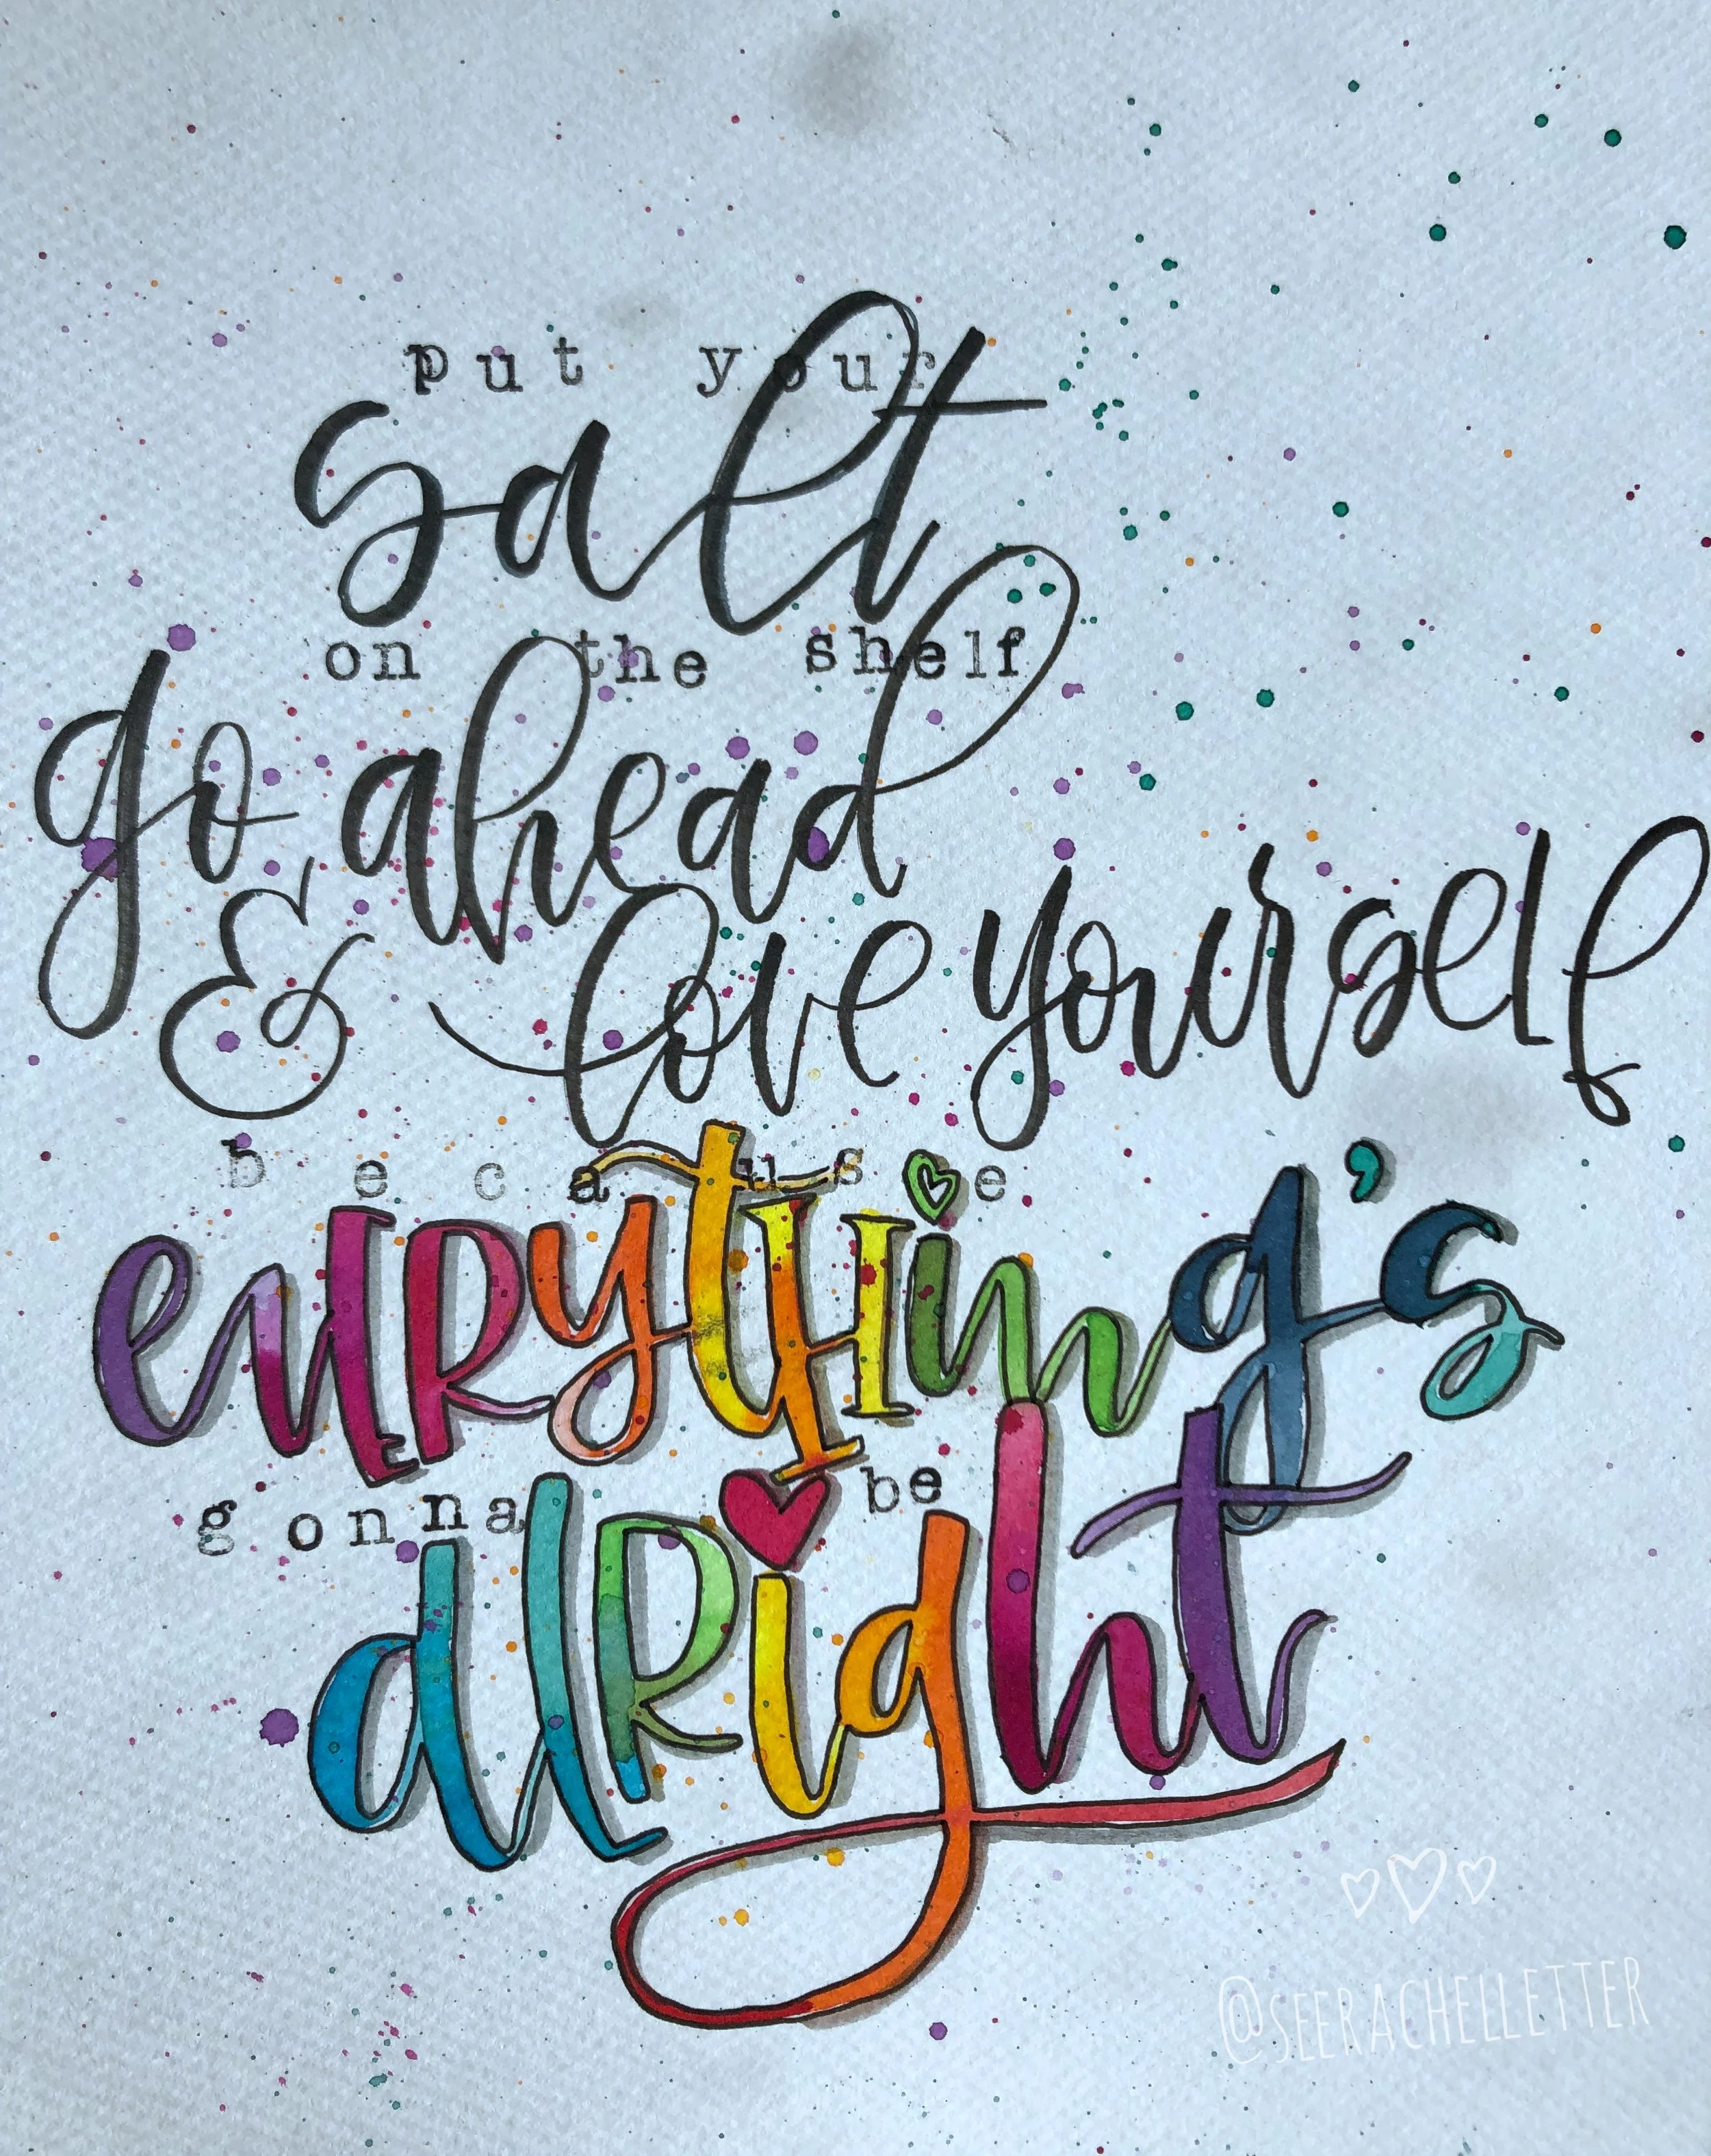 put your
salt
on the shelf
go ahead
& love yourself
because
evRytHing's
gonna be
alRight
@SEERACHELLETTER